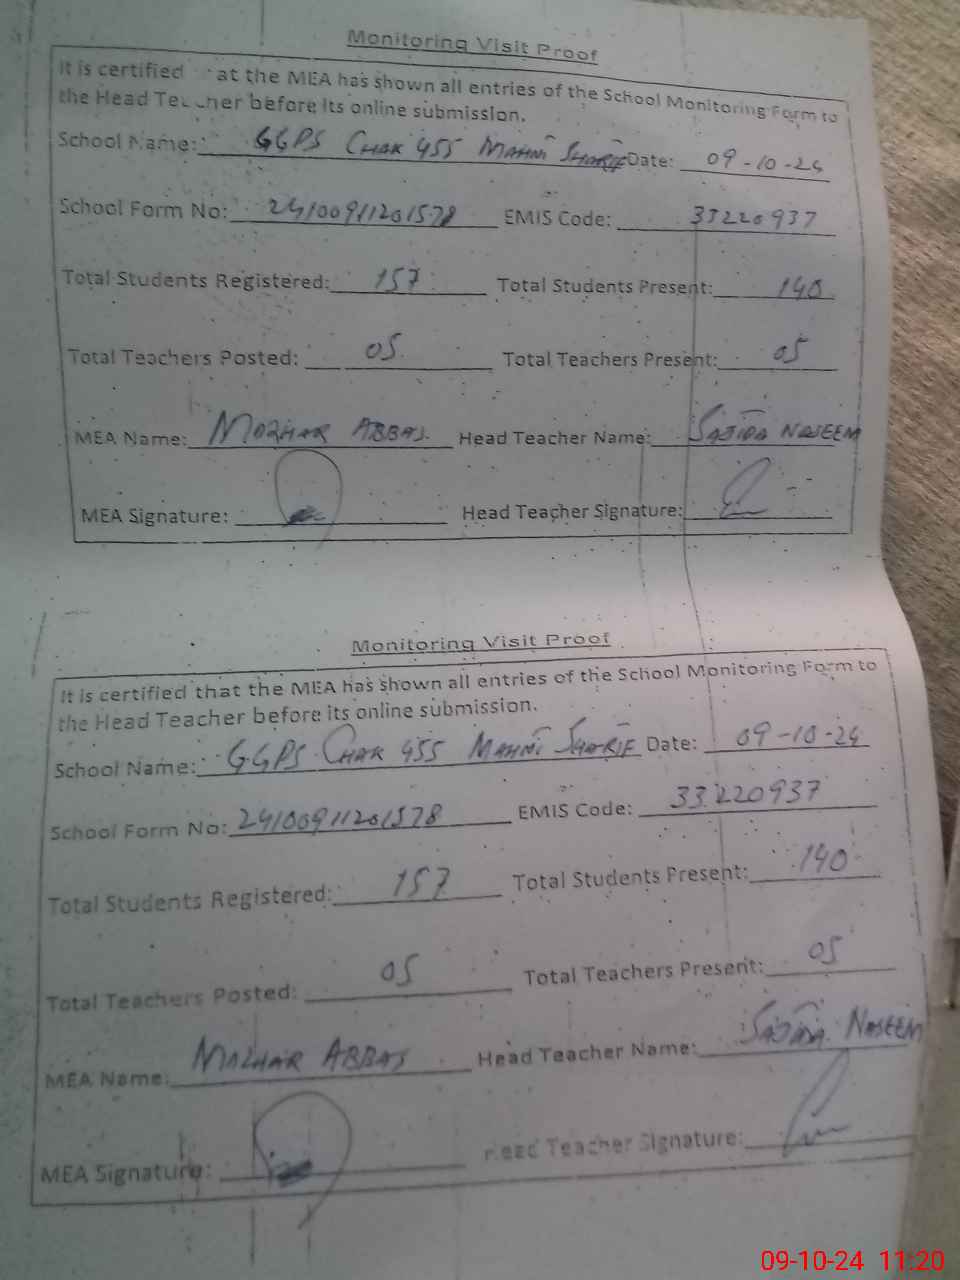 Monitoring Visit Proof
It is certified at the MEA has shown all entries of the School Monitoring Form to
the Head Teacher before its online submission.
School Name: GGPS CHAK 455 MAHNI SHARIF Date: 09-10-24
School Form No: 24100911201578 EMIS Code: 33220937
Total Students Registered: 157 Total Students Present: 140
Total Teachers Posted: 05 Total Teachers Present: 05
MEA Name: MAZHAR ABBAS Head Teacher Name: SAJIDA NASEEM
MEA Signature: Head Teacher Signature:
Monitoring Visit Proof
It is certified that the MEA has shown all entries of the School Monitoring Form to
the Head Teacher before its online submission.
School Name: GGPS CHAK 455 MAHNI SHARIF Date: 09-10-24
School Form No: 24100911201578 EMIS Code: 33220937
Total Students Registered: 157 Total Students Present: 140
Total Teachers Posted: 05 Total Teachers Present: 05
MEA Name: MAZHAR ABBAS Head Teacher Name: SAJIDA NASEEM
MEA Signature: Head Teacher Signature:
09-10-24 11:20